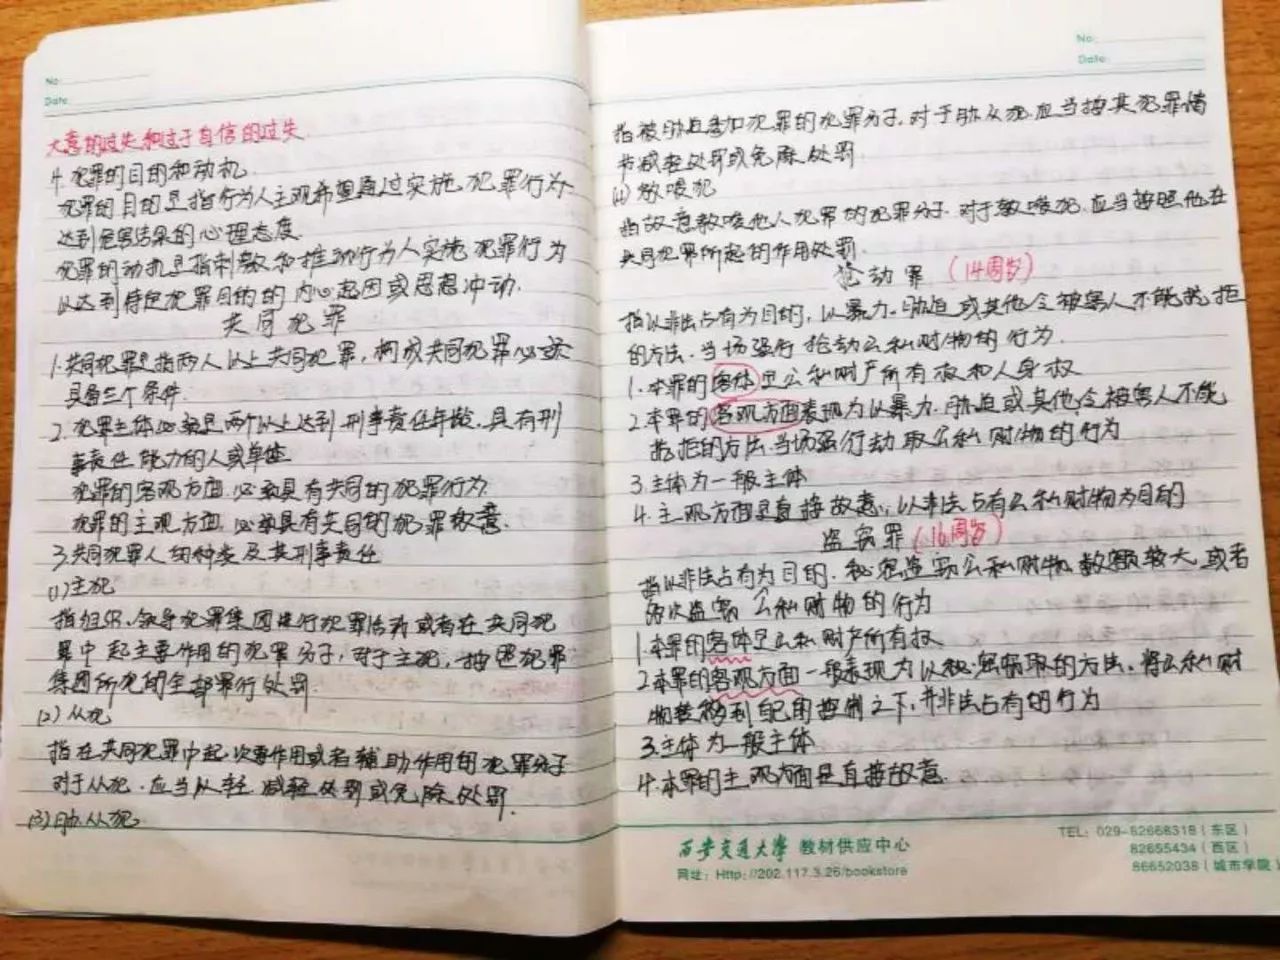 No:
Date:
大意的过失和过于自信的过失.
4. 犯罪的目的和动机.
犯罪的目的是指行为人主观希望通过实施犯罪行为
达到危害结果的心理态度.
犯罪的动机是指刺激和推动行为人实施犯罪行为
以达到待包犯罪目的的内心起因或思想冲动.
共同犯罪
1.共同犯罪是指两人以上共同犯罪,构成共同犯罪必须
具备三个条件.
2. 犯罪主体必须是两个以上达到刑事责任年龄,具有刑
事责任能力的人或单位
犯罪的客观方面,必须具有共同的犯罪行为.
犯罪的主观方面,必须具有共同的犯罪故意.
3.共同犯罪人的种类及其刑事责任
(1)主犯
指组织、领导犯罪集团进行犯罪活动或者在共同犯
罪中起主要作用的犯罪分子,对于主犯,按照犯罪
集团所犯的全部罪行处罚.
(2)从犯
指在共同犯罪中起次要作用或者辅助作用的犯罪分子
对于从犯,应当从轻、减轻处罚或免除处罚.
(3)胁从犯
No:
Date:
指被胁迫参加犯罪的犯罪分子,对于胁从犯,应当按其犯罪情
节减轻处罚或免除处罚.
(4)教唆犯
指故意教唆他人犯罪的犯罪分子,对于教唆犯,应当按照他在
共同犯罪所起的作用处罚.
抢劫罪(14周岁)
指以非法占有为目的,以暴力、胁迫或其他令被害人不能抗拒
的方法,当场强行抢劫公私财物的行为.
1.本罪的客体是公私财产所有权和人身权
2.本罪的客观方面表现为以暴力、胁迫或其他令被害人不能
抗拒的方法,当场强行劫取公私财物的行为
3.主体为一般主体
4.主观方面是直接故意,以非法占有公私财物为目的
盗窃罪(16周岁)
指以非法占有为目的,秘密盗窃公私财物数额较大,或者
多次盗窃公私财物的行为
1.本罪的客体是公私财产所有权
2.本罪的客观方面一般表现为以秘密窃取的方法,将公私财
物转移到自己的控制之下,并非法占有的行为
3.主体为一般主体
4.本罪的主观方面是直接故意.
西安交通大学 教材供应中心
网址:Http://202.117.3.26/bookstore
TEL: 029-82668318(东区)
82655434(西区)
86652038(城市学院)